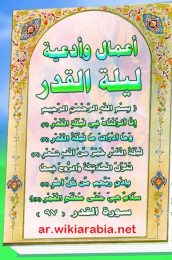 أعمال وأدعية
ليلة القدر
﴿ بسم الله الرحمن الرحيم
إنا أنزلناه في ليلة القدر (١)
وما أدراك ما ليلة القدر (٢)
ليلة القدر خير من ألف شهر (٣)
تنزل الملائكة والروح فيها
بإذن ربهم من كل أمر (٤)
سلام هي حتى مطلع الفجر (٥)
سورة القدر ( ٩٧ )
ar.wikiarabia.net